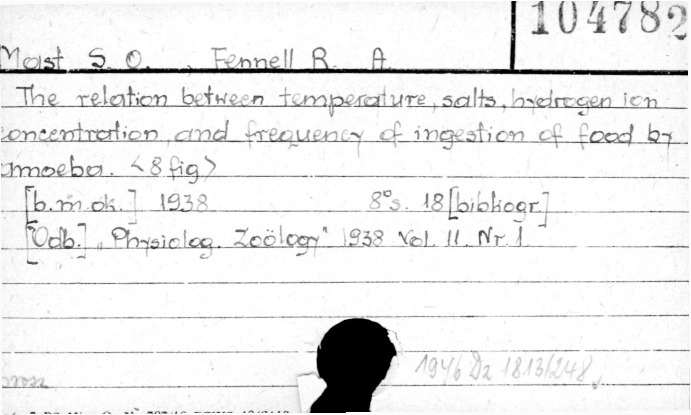 104782
Mast S. O. , Fennell R. A.
The relation between temperature, salts, hydrogen ion
concentration and frequency of ingestion of food by
amoeba. <8 fig>
[b.m.ok.] 1938 8°s. 18 [bibliogr.]
[Odb.] "Physiolog. Zoölogy" 1938 Vol. 11. Nr 1
1946 Dz 1813/248